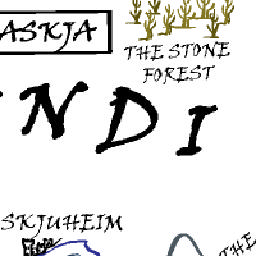 ASKJA
THE STONE
FOREST
NDI
SKJUHEIM
THE